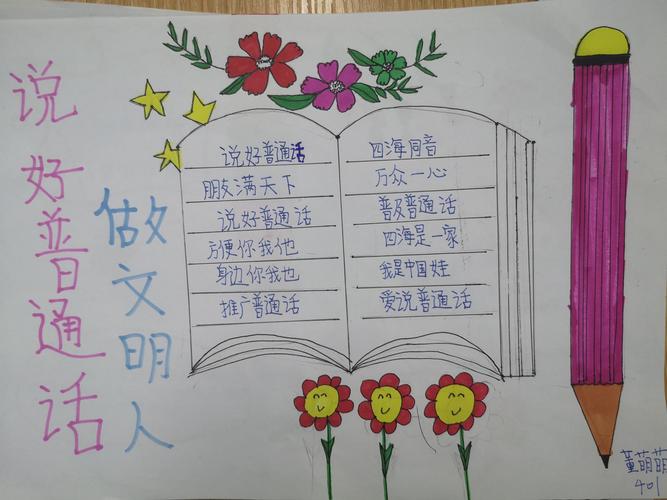 说好普通话
做文明人
说好普通话
朋友满天下
说好普通话
方便你我他
身边你我也
推广普通话
四海同音
万众一心
普及普通话
四海是一家
我是中国娃
爱说普通话
董萌萌
401